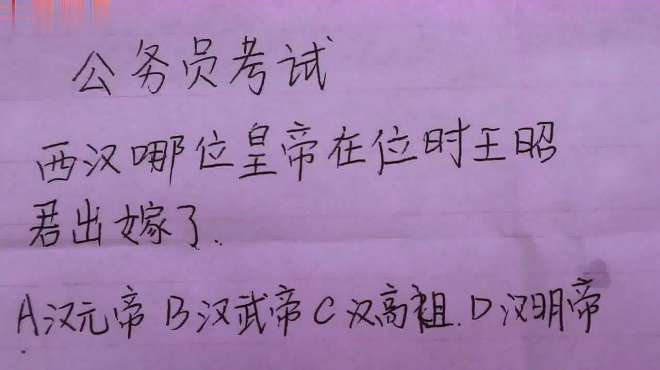 公务员考试
西汉哪位皇帝在位时王昭
君出嫁了.
A汉元帝 B汉武帝 C汉高祖. D汉明帝